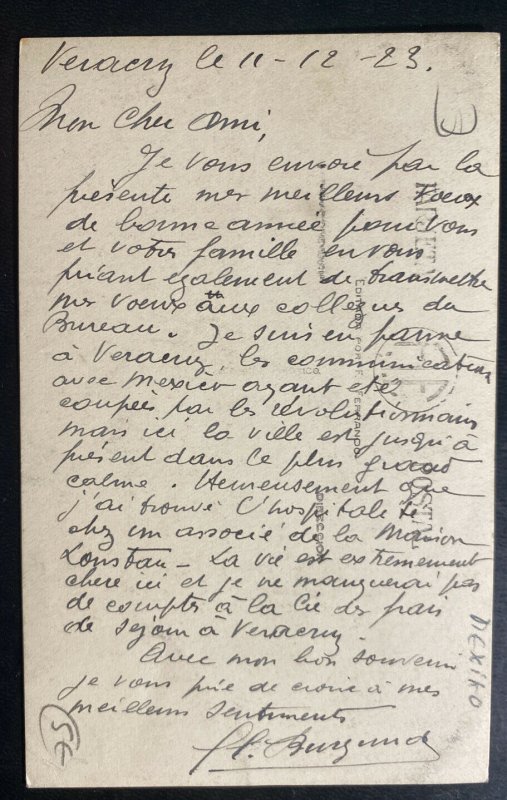 Veracruz le 11-12-23.
Mon cher Ami,
Je vous envoie par la
présente mes meilleurs voeux
de bonne année pour vous
et votre famille en vous
priant également de transmettre
mes voeux aux collègues du
Bureau. Je suis en panne
à Veracruz, les communications
avec Mexico ayant été
coupées par les révolutionnaires
mais ici la ville est jusqu'à
présent dans le plus grand
calme. Heureusement que
j'ai trouvé l'hospitalité
chez un associé de la Maison
Loustau - La vie est extrêmement
chère ici et je ne manquerai pas
de compter à la Cie des frais
de séjour à Veracruz.
Avec mon bon souvenir
je vous prie de croire à mes
meilleurs sentiments
Burgund
MEXIKO
POSTAL
DIRECCION